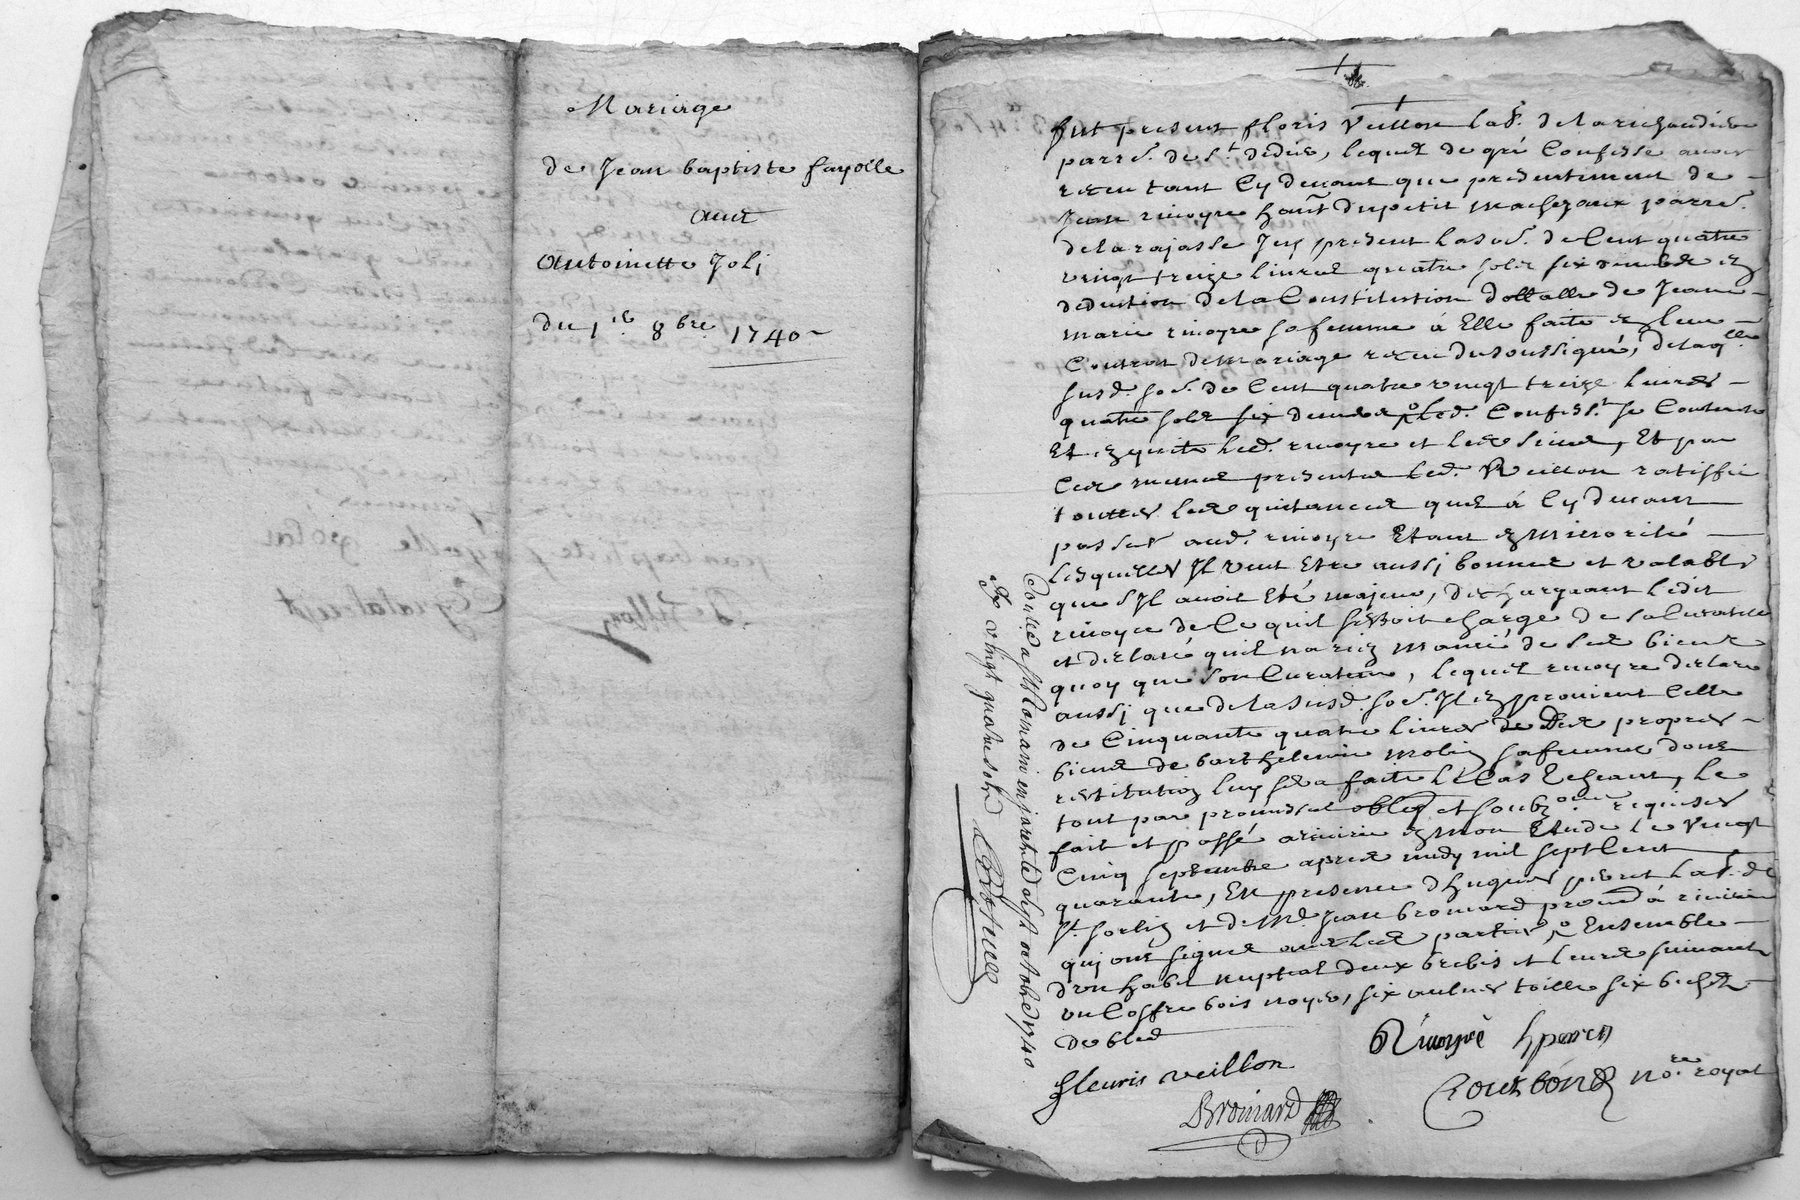 Mariage
de Jean baptiste fayolle
avec
Antoinette Joli
du 1er 8bre 1740
fut present floris Veillon lab.r de la richaudiere
parr.e de s.t didier, lequel de gré Confesse avoir
receu tant Cy devant que presentement de
Jean rivoyre hañt du petit machezaux parr.e
de la rajasse Icy present la so.e de Cent quatre
vingt treize livres quatre sols six deniers en
deduction de la Constitution dottalle de Jeanne
marie rivoyre sa femme à Elle faitte en leur
Contrat de mariage receu du soussigné, de laq.lle
susd. so.e de Cent quatre vingt treize livres
quatre sols six deniers led. Confess.t se Contente
Et en quitte led. rivoyre et les siens, Et par
Ces mesmes presentes led. Veillon ratiffie
touttes les quittances quil à Cy devant
passés aud. rivoyre Etant en minorité
lesquelles Il veut Etre aussi bonnes et valables
que s'Il avoit Eté majeur, dechargeant ledit
rivoyre de Ce quil seroit chargé de sa Curatelle
et declaré quil na rien manié de ses biens
quoy que son Curateur, lequel rivoyre declare
aussi que de la susd. so.e Il en provient Celle
de Cinquante quatre livres de des propres
biens de barthelemie molin sa femme dont
restitution luy sera faitte le Cas Echeant, le
tout par promesses oblig et soubz.ons requises
fait et passé a riverie en mon Etude le vingt
Cinq septembre apres midy mil sept Cent
quarante, En presence d'hugues pieret lab.r de
s.t sorlin et de M.e Jean bromard à riverie
qui ont signé avec les parties, Ensemble
d'un habit nuptial deux brebis et leurs suivants
un Coffre bois noyer, six aulnes toille six bichets
de bled
fleuris veillon
Rivoyre h pieret
Bromard
Courbon no.re royal
Con.lé a st Romain en jarest le dix octobre 1740
Rx vingt quatre sols